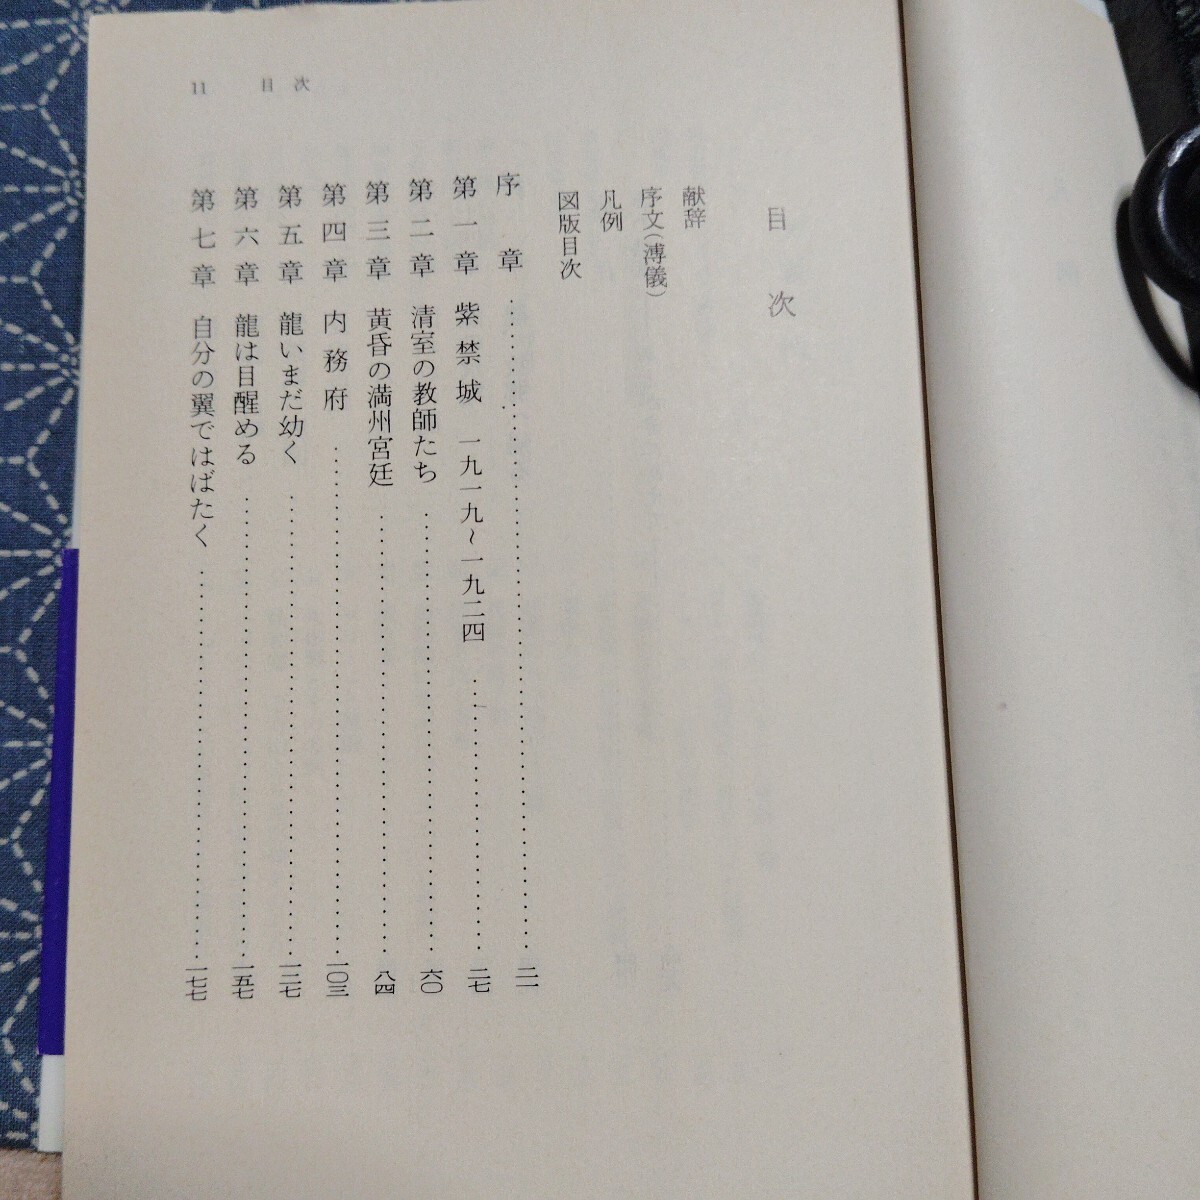 11 目次
目次
献辞
序文(溥儀)
凡例
図版目次
序章……二一
第一章 紫禁城 一九一九~一九二四……二七
第二章 清室の教師たち……六〇
第三章 黄昏の満州宮廷……八四
第四章 内務府……一〇三
第五章 龍いまだ幼く……一二七
第六章 龍は目醒める……一五七
第七章 自分の翼ではばたく……一七七